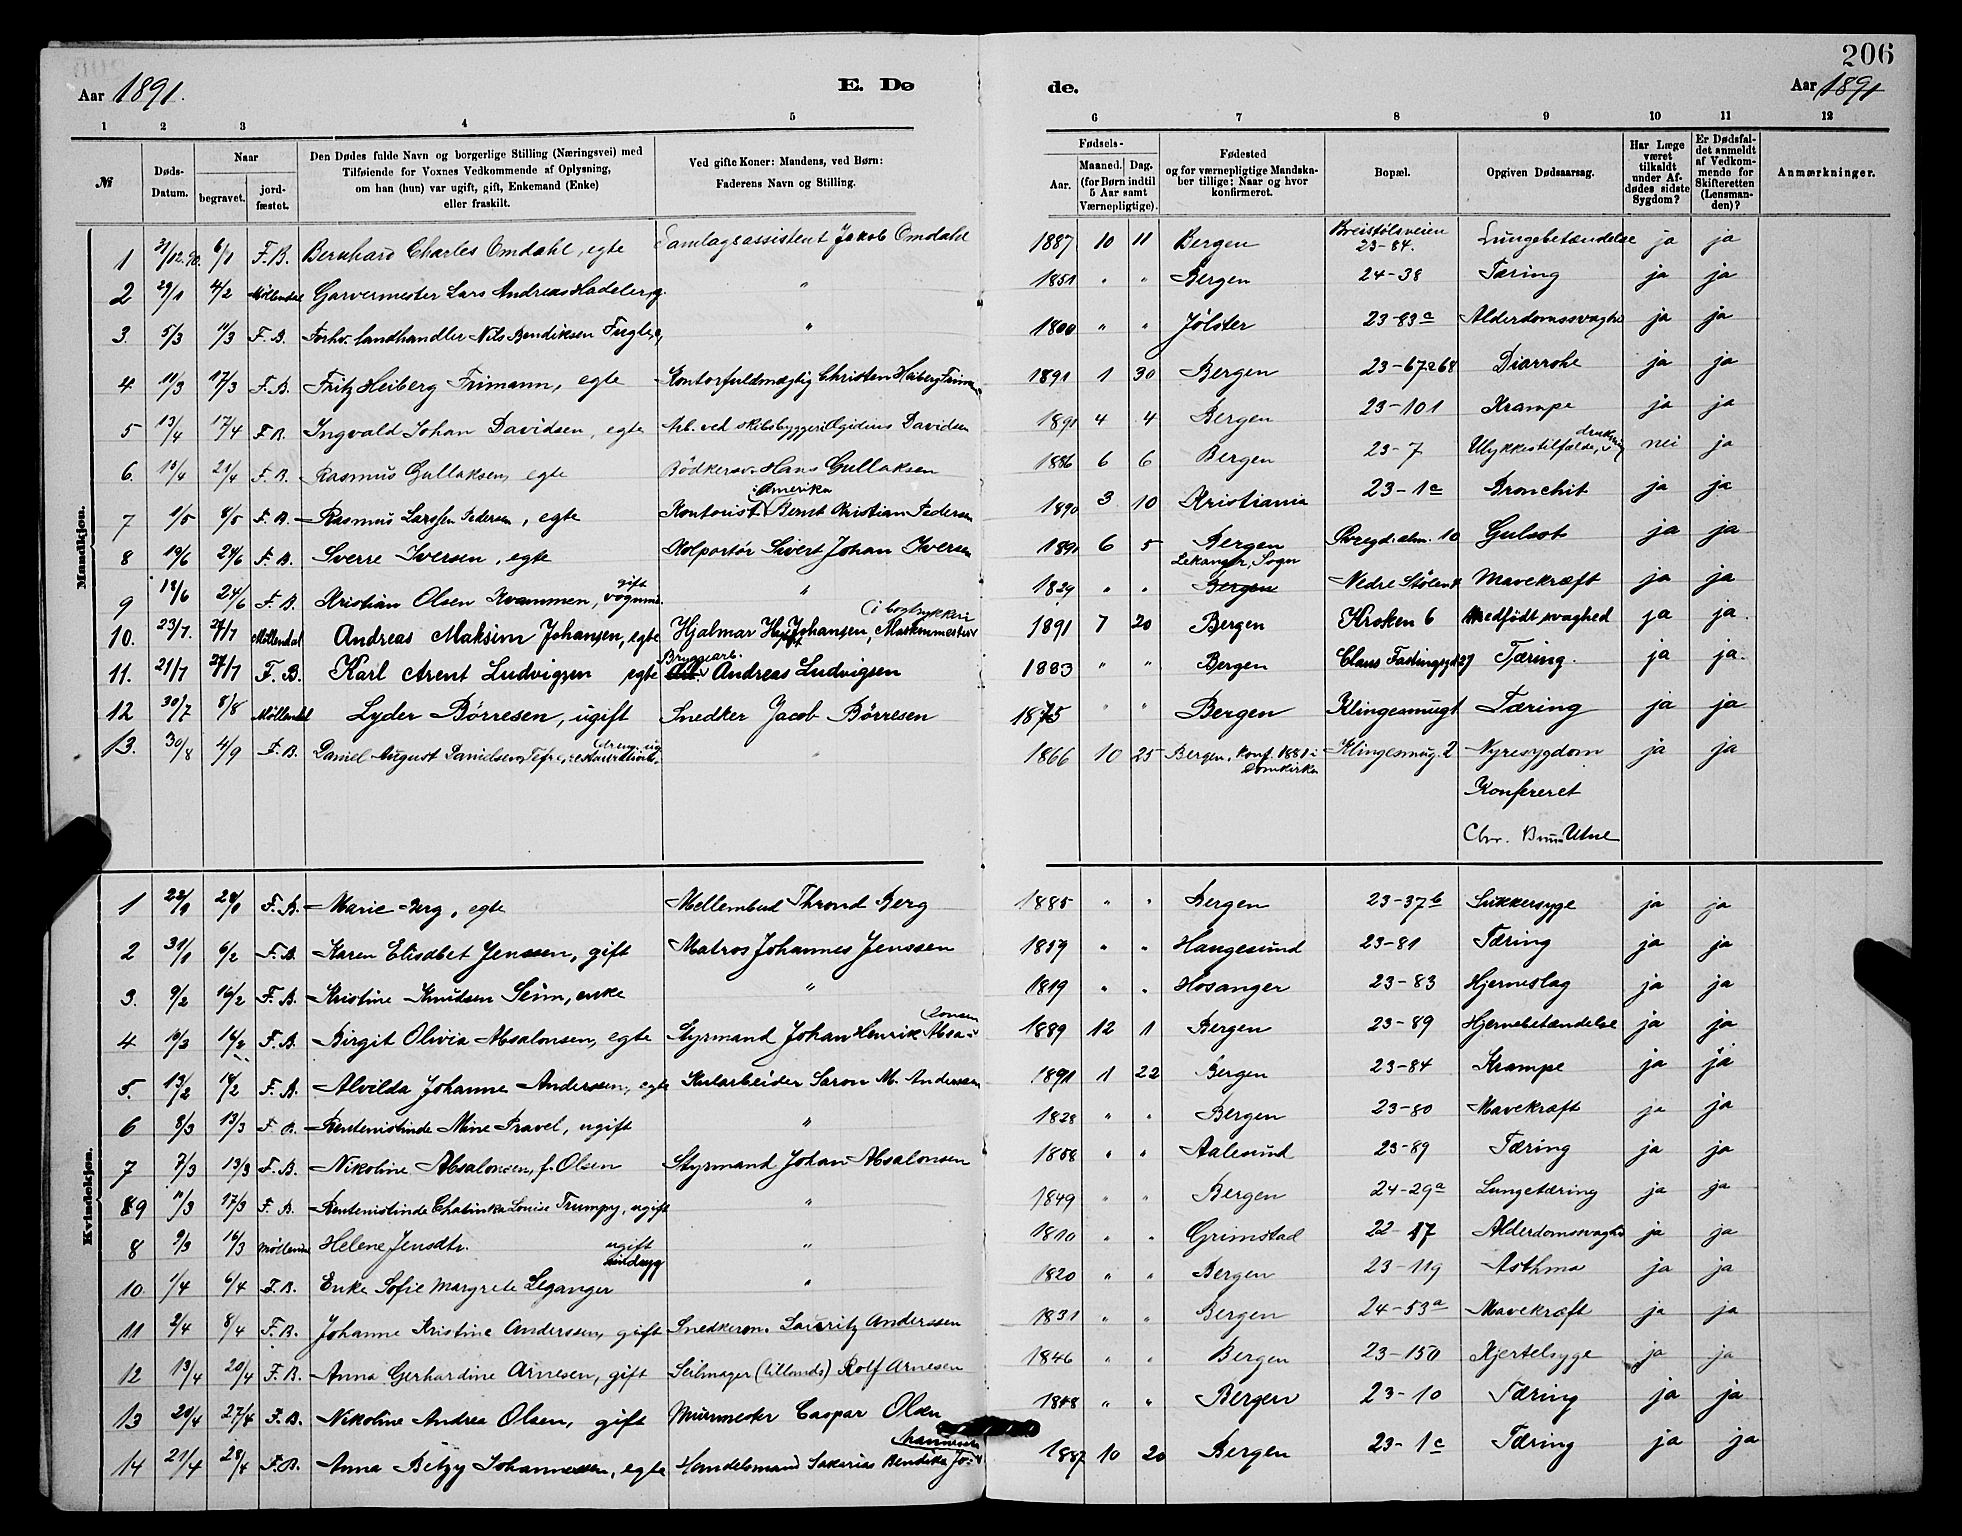 206
Aar 1891. E. Døde. Aar 1891
1 2 3 4 5 6 7 8 9 10 11 12
№ Døds-Datum. Naar begravet. jordfæstet. Den Dødes fulde Navn og borgerlige Stilling (Næringsvei) med Tilføiende for Voxnes Vedkommende af Oplysning, om han (hun) var ugift, gift, Enkemand (Enke) eller fraskilt. Ved gifte Koner: Mandens, ved Børn: Faderens Navn og Stilling. Fødsels- Aar. Maaned. Dag. (for Børn indtil 5 Aar samt Værnepligtige). Fødested og for værnepligtige Mandskaber tillige: Naar og hvor konfirmeret. Bopæl. Opgiven Dødsaarsag. Har Læge været tilkaldt under Afdødes sidste Sygdom? Er Dødsfaldet anmeldt af Vedkommende for Skifteretten (Lensmanden)? Anmærkninger.
Mandkjøn.
1 31/12.90. 6/1 F.B. Bernhard Charles Omdahl, egte Samlagsassistent Jakob Omdahl 1887 10 11 Bergen Breistølsveien 23-84. Lungebetændelse ja ja
2 29/1 4/2 Møllendal Garvermester Lars Andreas Hadeler, g. " 1851 " " Bergen 24-38 Tæring ja ja
3. 5/3 11/3 F.B. Forhv. landhandler Nils Bendiksen Fugle, " 1800 " " Jølster 23-83a Alderdomssvaghed ja ja
4 11/3 17/3 F.B. Fritz Heiberg Frimann, egte Kontorfuldmægtig Christen Heiberg Frimann 1891 1 30 Bergen 23-67a68 Diarrohe ja ja
5 13/4 17/4 F.B. Ingvald Johan Davidsen, egte Arb. ved skibsbyggeri Egidius Davidsen 1891 4 4 Bergen 23-101 Krampe ja ja
6. 15/4 21/4 F.B. Rasmus Gullaksen, egte Bødkersv. Hans Gullaksen 1886 6 6 Bergen 23-7 Ulykkestilfælde, drukning nei ja
7 1/5 8/5 F.B. Rasmus Larssen Pedersen, egte Kontorist i Amerika Bernt Kristian Pedersen 1890 3 10 Kristiania 23-1c Bronchit ja ja
8 19/6 24/6 F.B. Sverre Iversen, egte Kolportør Sivert Johan Iversen 1891 6 5 Bergen Øvregd. alm. 10 Gulsot ja ja
9 18/6 24/6 F.B. Kristian Olsen Kvammen, gift vognm. " 1829 " " Lekanger, Sogn Bergen Nedre Stølen Mavekræft ja ja
10. 23/7. 27/7 Møllendal Andreas Maksim Johansen, egte Hjalmar Johansen, Maskinmester (i bogtrykkeri 1891 7 20 Bergen Kroken 6 Medfödt svaghed ja ja.
11. 21/7 27/7 F.B. Karl Arent Ludvigsen egte Bryggearb. Andreas Ludvigsen 1883 " " Bergen Claus Fastingsgd 27 Tæring. ja ja.
12 30/7 8/8 Møllendal Lyder Börresen, ugift Snedker Jacob Börresen 1875 " " Bergen Klingesmugt Tæring ja ja
13. 30/8 4/9 F.B. Daniel August Danielsen Tefre, restauratör, ug " 1866 10 25 Bergen, konf. 1881 i Domkirken Klingesmug. 2 Nyresygdom ja ja
Konfereret
Chr. Bruun Utne
Kvindekjøn.
1 22/1 28/1 F.B. Marie Berg, egte Mellembud Thrond Berg 1885 " " Bergen 23-37b Sukkersyge ja ja
2 31/1 6/2 F.B. Karen Elisabet Jenssen, gift Matros Johannes Jenssen 1857 " " Haugesund 23-81 Tæring ja ja
3. 9/2 16/2 F.B. Kristine Knudsen Seim, enke " 1819 " " Hosanger 23-83 Hjerneslag ja ja
4 10/2 14/2 F.B. Birgit Olivia Absalonsen, egte Styrmand Johan Henrik Absalonsen 1889 12 1 Bergen 23-89 Hjernebetændelse ja ja
5. 13/2 18/2 F.B. Alvilda Johanne Anderssen, egte Kularbeider Saron M. Anderssen 1891 1 22 Bergen 23-84 Krampe ja ja
6 8/3 13/3 F.B. Rentenistinde Mine Travel, ugift " 1828 " " Bergen 23-80 Mavekræft ja ja
7 7/3 13/3 F.B. Nikoline Absalonsen, f. Olsen Styrmand Johan Absalonsen 1858 " " Aalesund 23-89 Tæring ja ja
89 11/3 17/3 F.B. Rentenistinde Chatinka Louise Trumpy, ugift " 1849 " " Bergen 24-29a Lungetæring ja ja
8 9/3 16/3 Møllendal Helene Jensdtr. ugift sindssyg " 1810 " " Grimstad 22-17 Alderdomssvaghed ja ja
10 1/4 6/4 F.B. Enke Sofie Margrete Leganger " 1820 " " Bergen 23-119 Asthma ja ja
11 2/4 8/4 F.B. Johanne Kristine Anderssen, gift Snedkersv. Lauritz Anderssen 1831 " " Bergen 24-53a Mavekræft ja ja
12 13/4 20/4 F.B. Anna Gerhardine Arnesen, gift Seilmager (tillands) Rolf Arnesen 1846 " " Bergen 23-150 Kjertelsyge ja ja
13 20/4 27/4 F.B. Nikoline Andrea Olsen, gift Murmester Caspar Olsen 1848 " " Bergen 23-10 Tæring ja ja
14 21/4 28/4 F.B. Anna Betzy Johannessen, egte Handelsmand Sakarias Bendiks Johannessen 1887 10 20 Bergen 23-1c Tæring ja ja